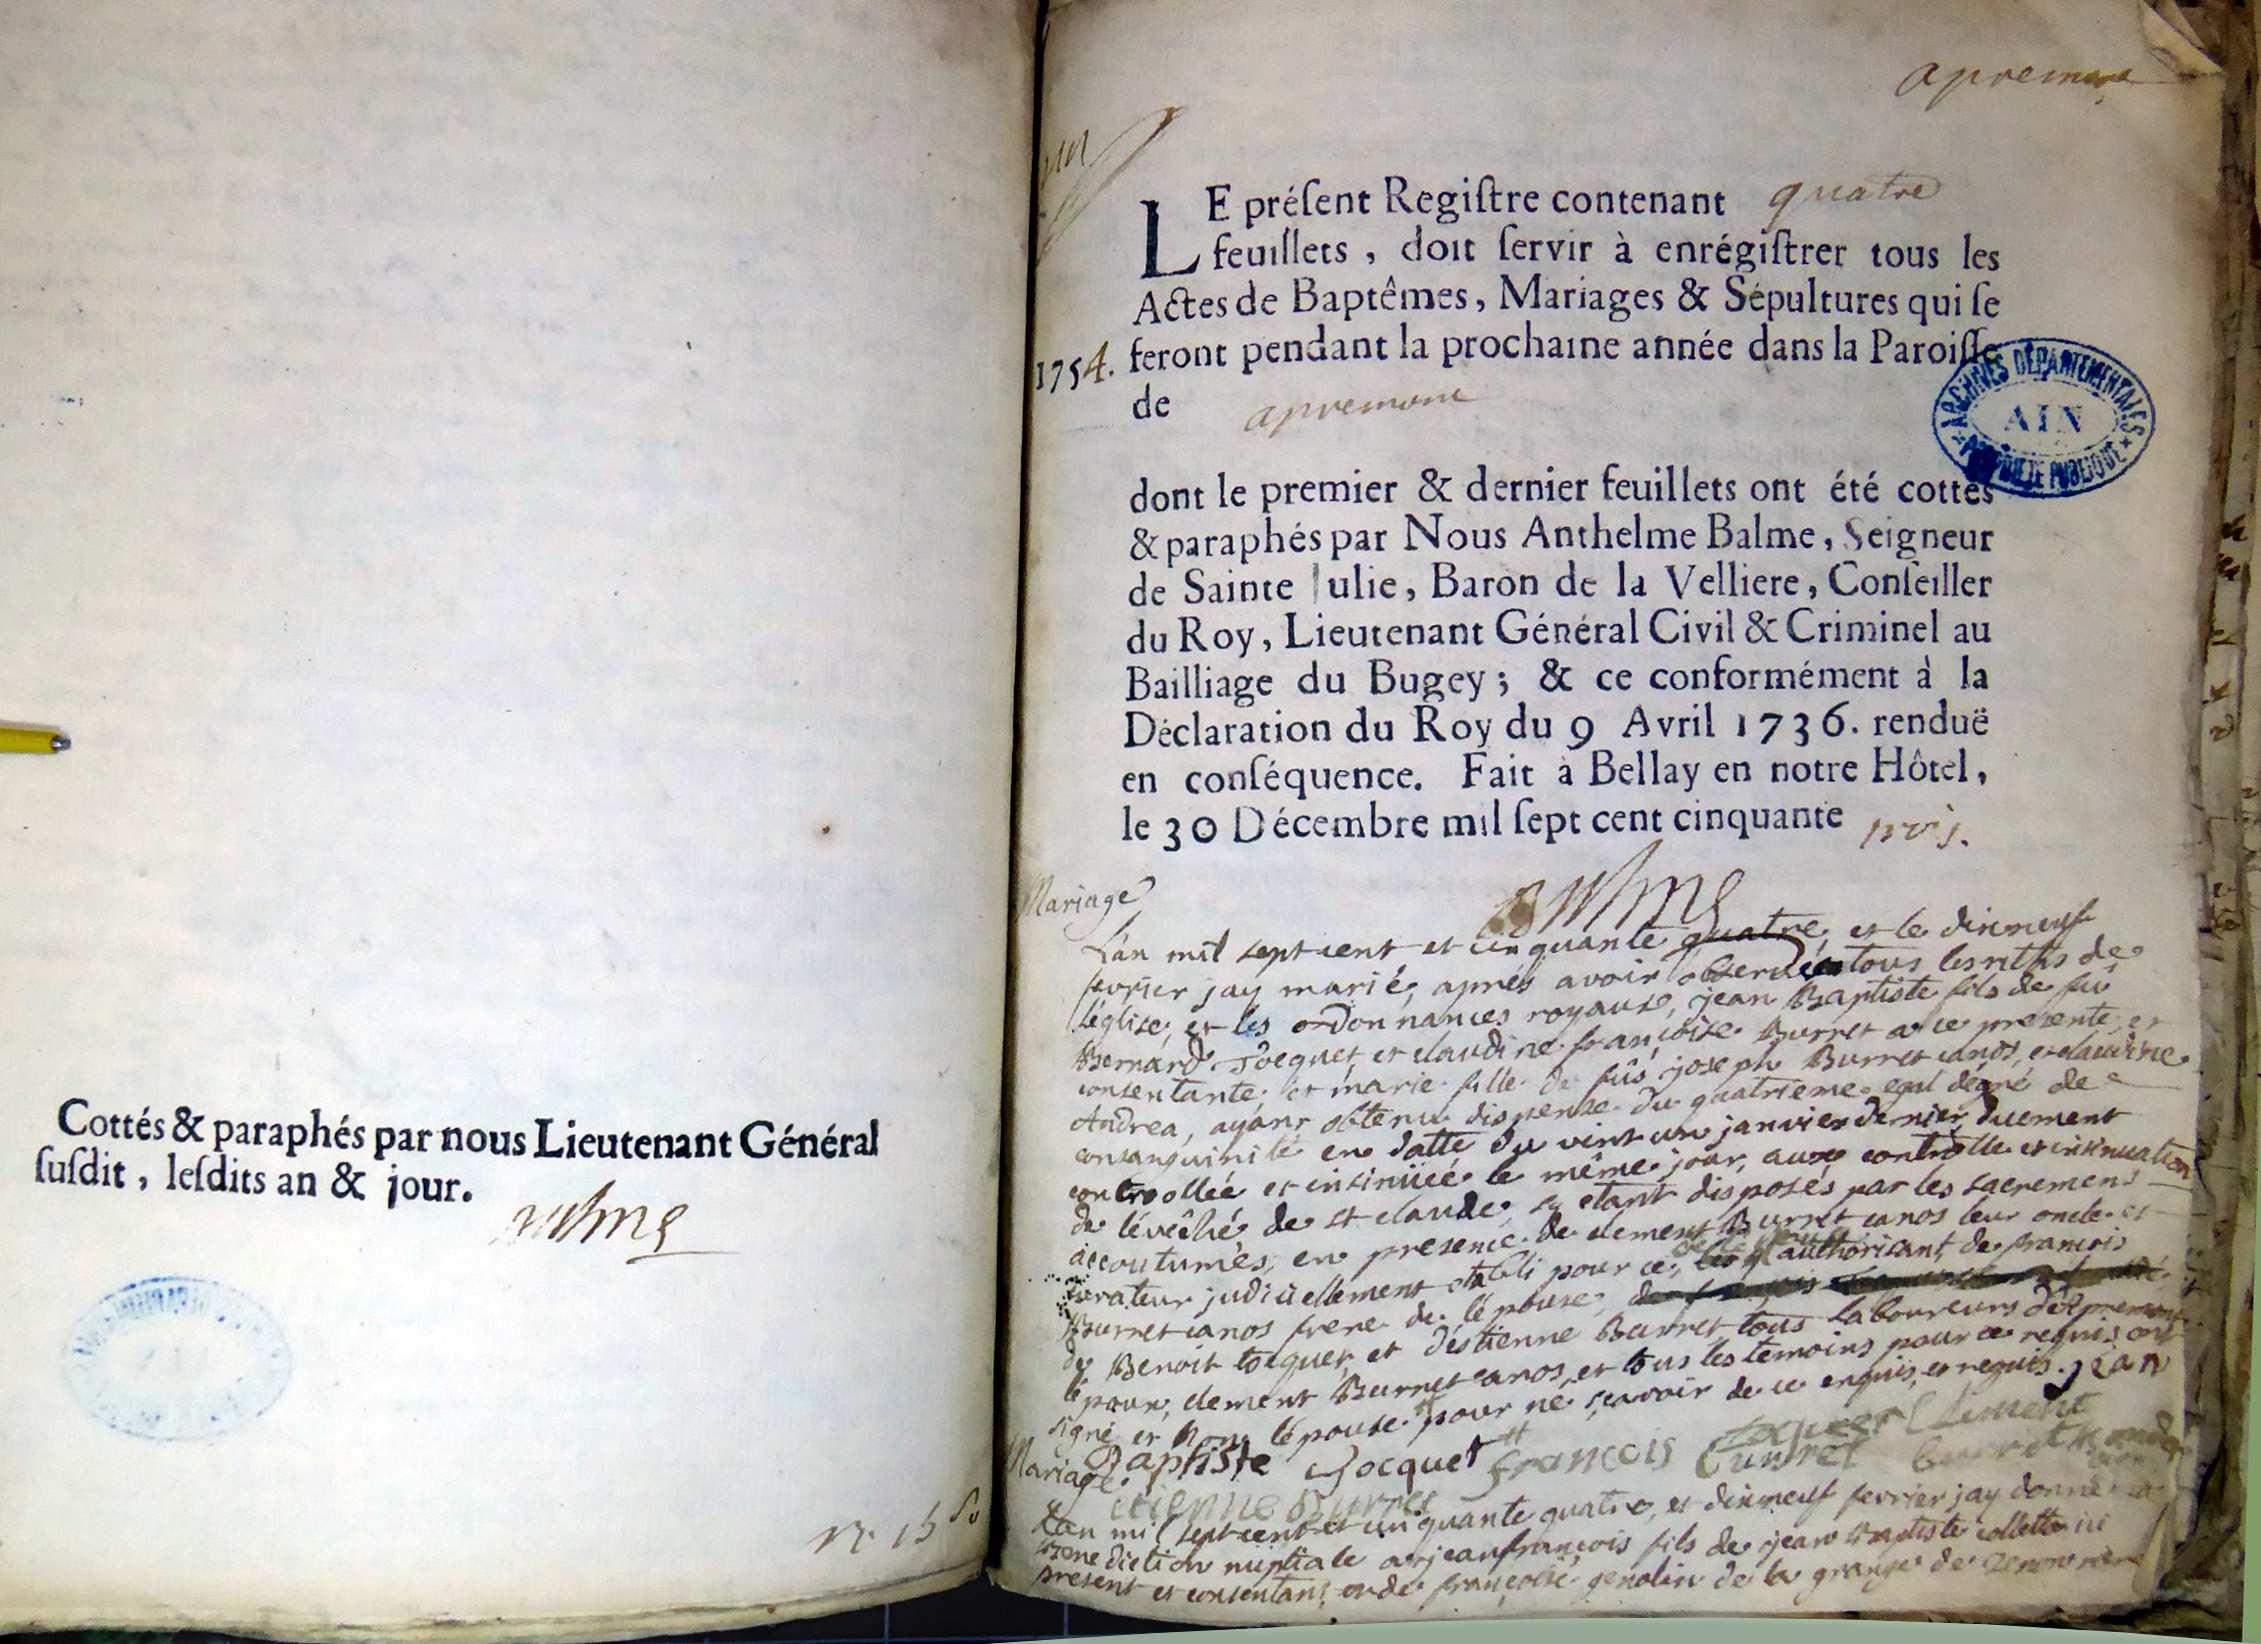 Cottés & paraphés par nous Lieutenant Général
ſuſdit, leſdits an & jour.
apremont
LE préſent Regiſtre contenant quatre
feuillets, doit ſervir à enrégiſtrer tous les
Actes de Baptêmes, Mariages & Sépultures qui ſe
1754. feront pendant la prochaine année dans la Paroiſſe
de apremont
ARCHIVES DÉPARTEMENTALES
AIN
PROPRIÉTÉ PUBLIQUE
dont le premier & dernier feuillets ont été cottés
& paraphés par Nous Anthelme Balme, Seigneur
de Sainte Julie, Baron de la Velliere, Conſeiller
du Roy, Lieutenant Général Civil & Criminel au
Bailliage du Bugey; & ce conformément à la
Déclaration du Roy du 9 Avril 1736. renduë
en conſéquence. Fait à Bellay en notre Hôtel,
le 30 Décembre mil ſept cent cinquante trois.
Balme
Mariage
L'an mil sept cent et cinquante quatre, et le dixneuf
fevrier jay marié, aprés avoir observée tous les rithS de
l'église, et les ordonnances royaux, jean Baptiste fils de fû
Bernard Jocquet et claudine françoise Burret a ce presente, et
consentante; et marie fille de fûs joseph Burret canos, et claudine
Andrea, ayant obtenu dispense du quatrieme egal dégré de
consanguinité en datte du vint un janvier dernier, duement
controollée et insinüée le même jour, aux controlle et insinuation
de lévêché de st claude, s'y etant disposés par les sacremens
accoutumés, en presence de clement Burret canos leur oncle et
curateur judiciellement etabli pour ce, authorisant, de francois
Burret canos frere de lépouse,
de Benoit Jocquet, et déstienne Burret tous laboureurs d'Apremont
lépoux, clement Burret canos, et tous les temoins pour ce requis ont
signé et non lépouse pour ne sçavoir de ce enquis, et requis. jean
Baptiste Jocquet francois Burret Clement
Mariage
etienne Burret
L'an mil sept cent et cinquante quatre, et dixneuf fevrier jay donné la
Benediction nuptiale a jean françois fils de jean Baptiste collette ici
present et consentant, et de françoise genolin de la grange de